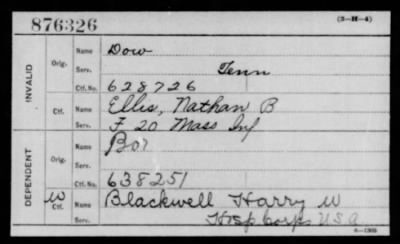 876326
(3-H-4)
INVALID
Orig.
Name Dow
Serv. Tenn
Ctf. No. 628726
Ctf.
Name Ellis, Nathan B
Serv. F 20 Mass Inf
DEPENDENT
Orig.
Name Bor
Serv.
Ctf. No. 638251
W
Ctf.
Name Blackwell Harry W
Serv. Hosp Corps U S A